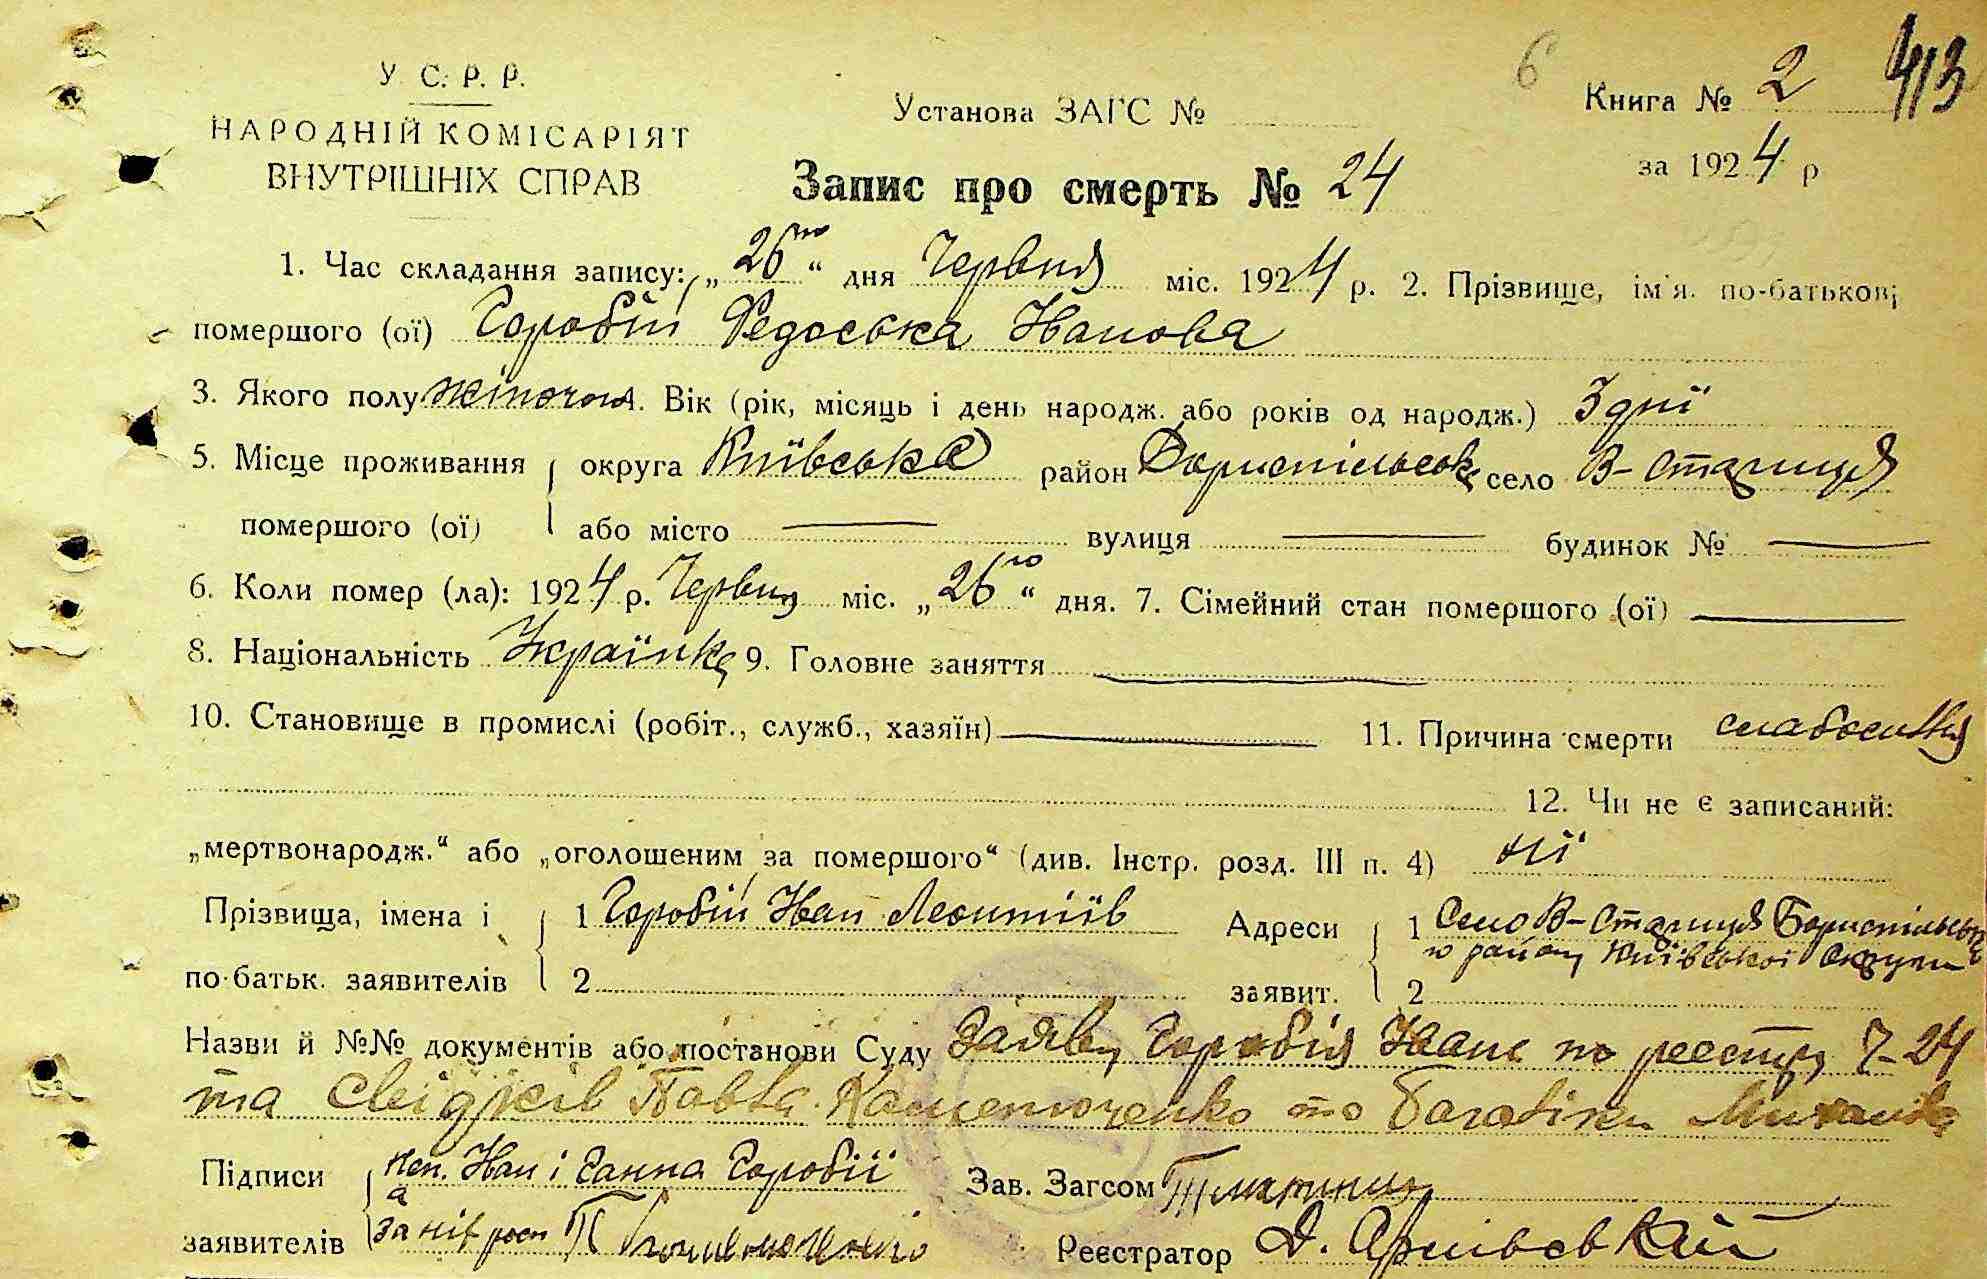 6 Книга № 2 413
У. С. Р. Р.
Установа ЗАГС №
НАРОДНІЙ КОМІСАРІЯТ
ВНУТРІШНІХ СПРАВ
за 1924 р
Запис про смерть № 24
1. Час складання запису: „26го“ дня Червня міс. 1924 р. 2. Прізвище, ім'я. по-батькові
помершого (ої) Горобій Федоська Іванова
3. Якого полу жіночого 4. Вік (рік, місяць і день народж. або років од народж.) 3 дні
5. Місце проживання округа Київська район Бориспільськ село В-Стариця
помершого (ої) або місто — вулиця — будинок № —
6. Коли помер (ла): 1924 р. Червня міс. „26го“ дня. 7. Сімейний стан помершого (ої) —
8. Національність Українка 9. Головне заняття —
10. Становище в промислі (робіт., служб., хазяїн) — 11. Причина смерти
12. Чи не є записаний:
„мертвонародж.“ або „оголошеним за помершого“ (див. Інстр. розд. III п. 4) ні
Прізвища, імена і 1 Горобій Іван Леонтіїв Адреси 1 Село В-Стариця Бориспільськ
го району Київської Округи
по-батьк. заявителів 2 заявит. 2
Назви й №№ документів або постанови Суду Заява Горобія Івана по реестру 7-24
та свідків Павла та Михаила
Підписи Іван і Ганна Горобії Зав. Загсом
заявителів за них росп П Реєстратор Д.